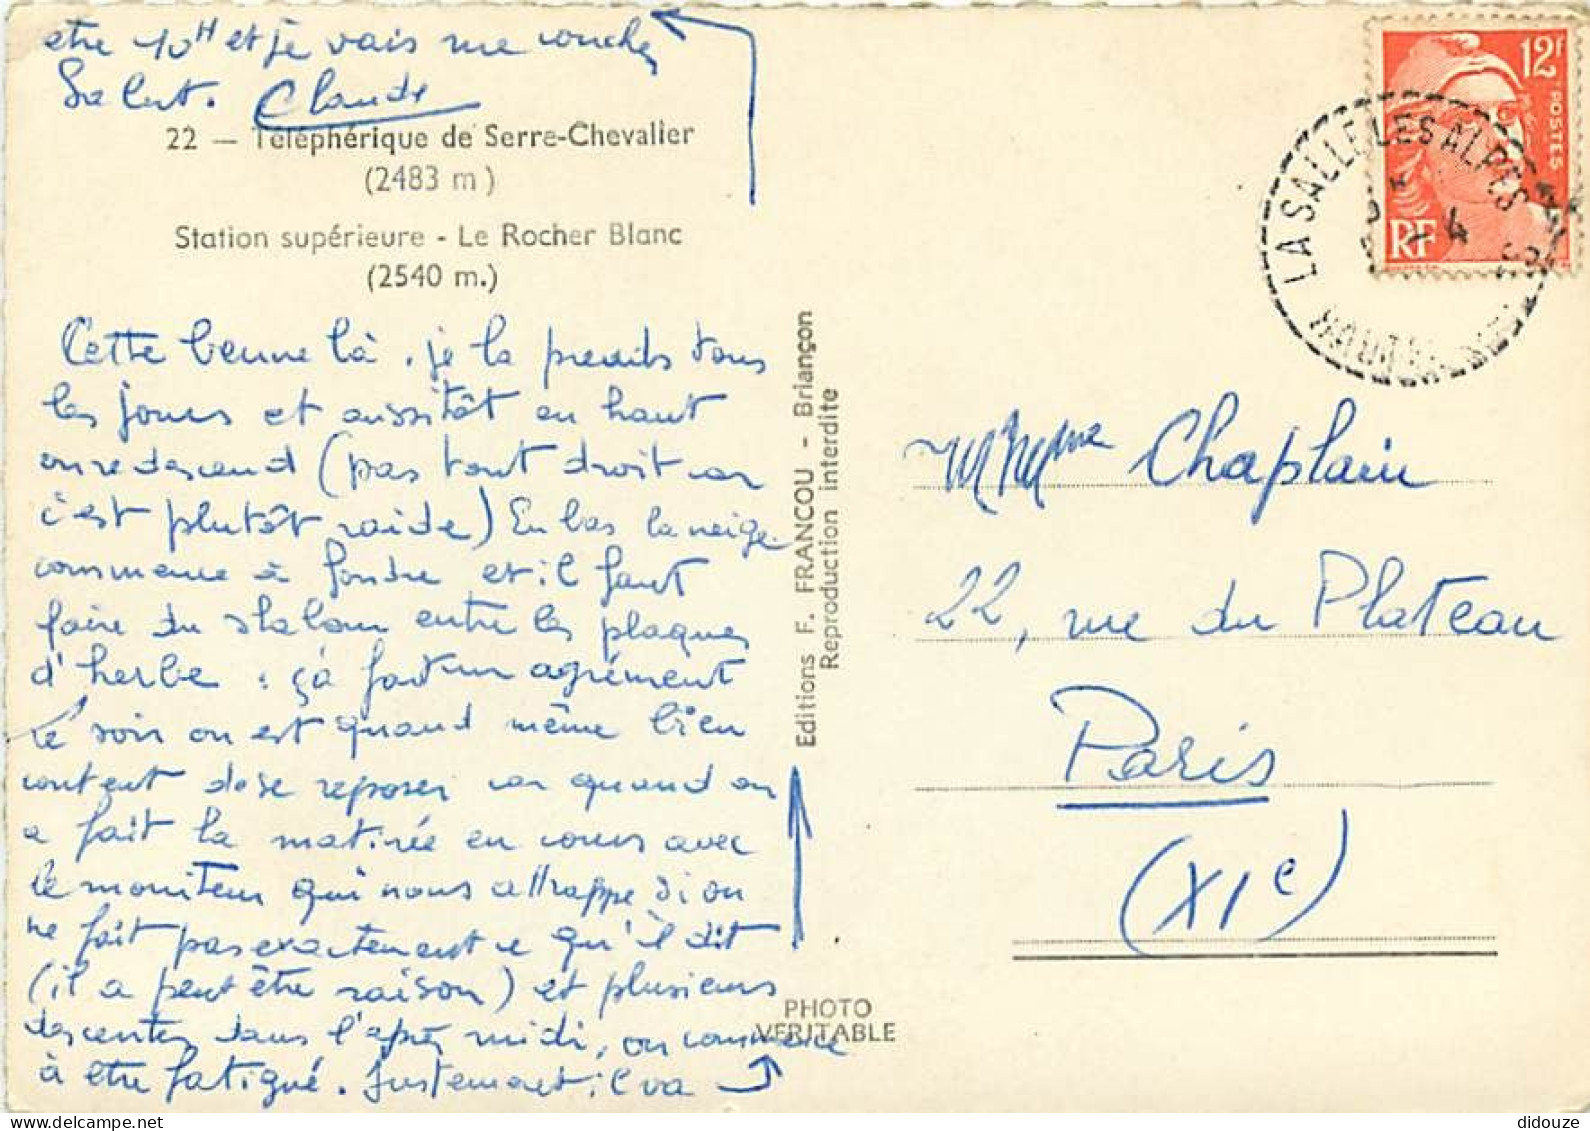 être 10H et je vais me coucher
Salut. Claude
22 — Téléphérique de Serre-Chevalier
(2483 m)
Station supérieure - Le Rocher Blanc
(2540 m.)
Cette benne là, je la prends tous
les jours et aussitôt en haut
on redescend (pas tout droit car
c'est plutôt raide) En bas la neige
commence à fondre et il faut
faire du slalom entre les plaques
d'herbe : çà fait un agrément
Le soir on est quand même bien
content de se reposer car quand on
a fait la matinée en cours avec
le moniteur qui nous attrappe si on
ne fait pas exactement ce qu'il dit
(il a peut être raison) et plusieurs
descentes dans l'après midi, on commence
à être fatigué. Justement il va
Editions F. FRANCOU - Briançon
Reproduction interdite
PHOTO
VERITABLE
12F
POSTES
RF
LA SALLE LES ALPES
4
Mme Chaplain
22, rue du Plateau
Paris
(XIe)
didouze